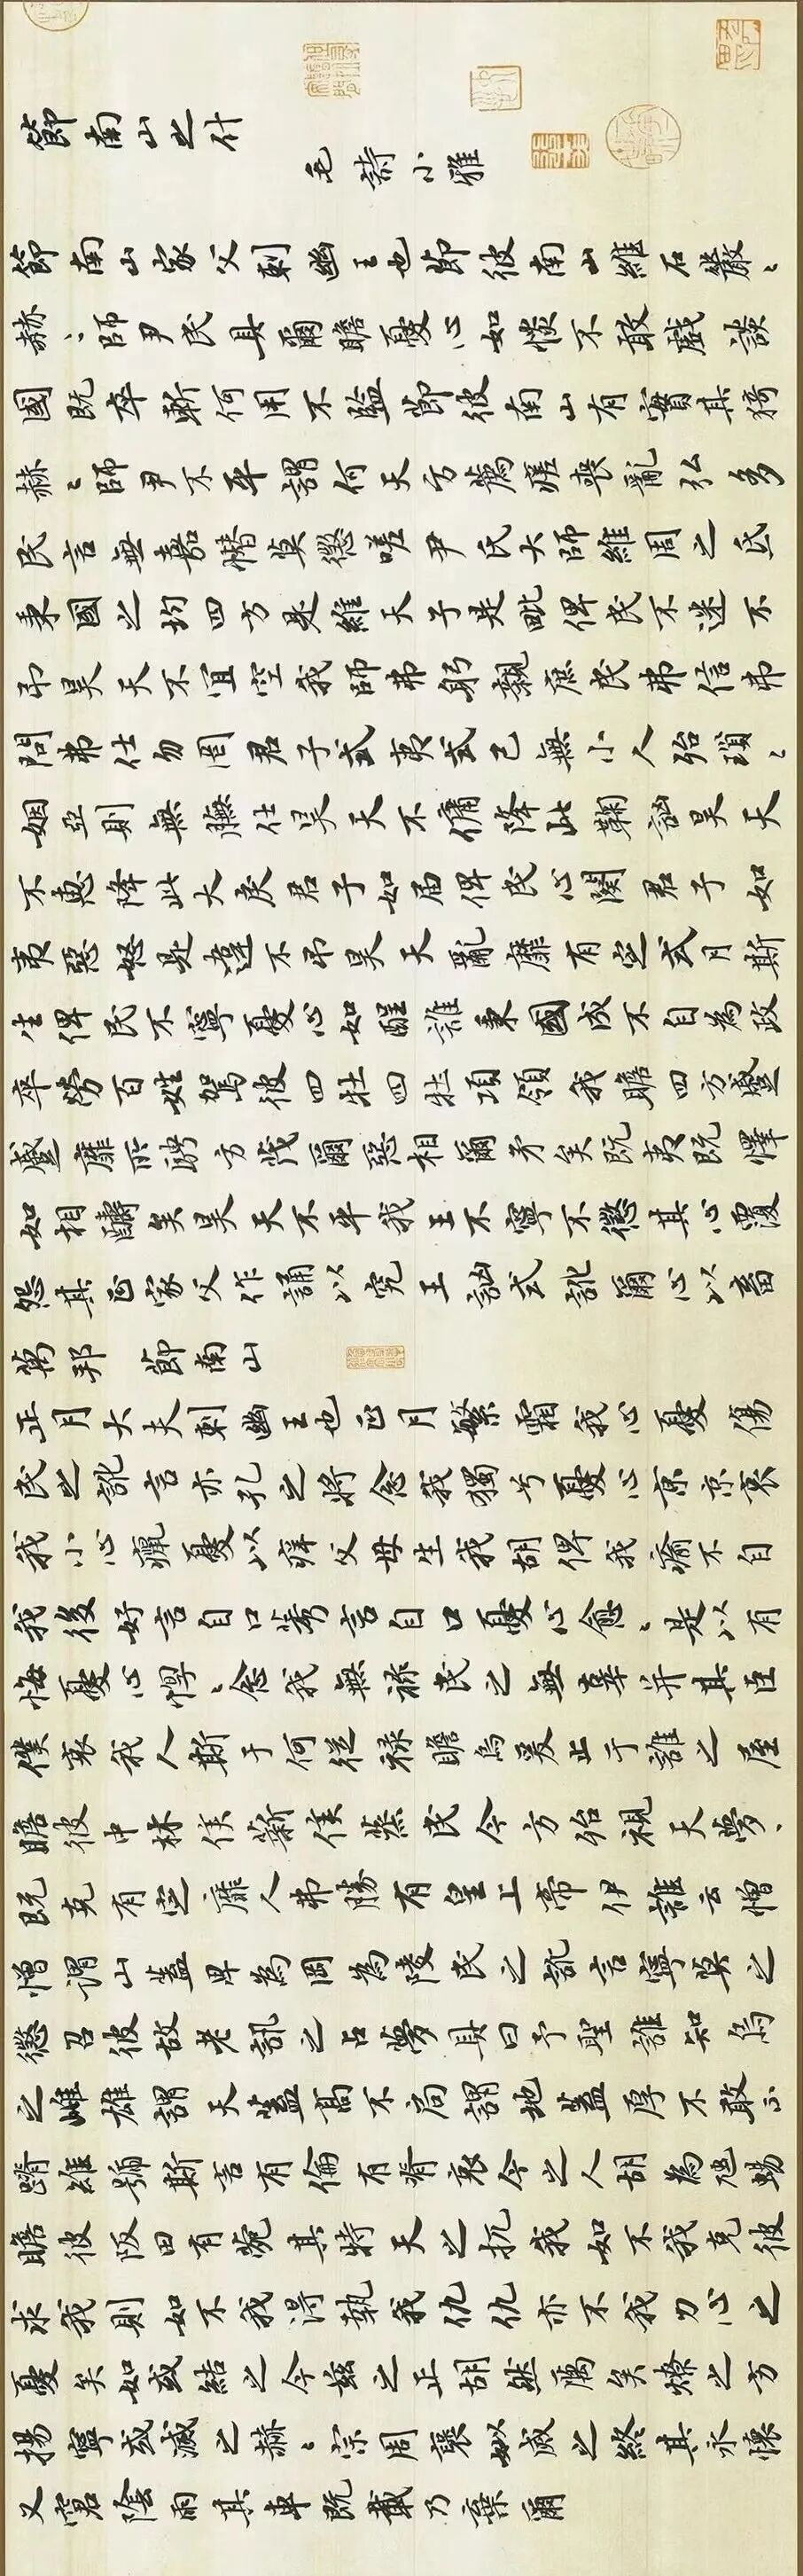 節南山之什
毛詩小雅
節南山家父刺幽王也節彼南山維石巖〻
赫〻師尹民具爾瞻憂心如惔不敢戲談
國既卒斬何用不監節彼南山有實其猗
赫〻師尹不平謂何天方薦瘥喪亂弘多
民言無嘉憯莫懲嗟尹氏大師維周之氐
秉國之均四方是維天子是毗俾民不迷不
弔昊天不宜空我師弗躬親庶民弗信弗
問弗仕勿罔君子式夷式已無小人殆瑣〻
姻亞則無膴仕昊天不傭降此鞠訩昊天
不惠降此大戾君子如届俾民心闋君子如
夷惡怒是違不弔昊天亂靡有定式月斯
生俾民不寧憂心如酲誰秉國成不自為政
卒勞百姓駕彼四牡四牡項領我瞻四方蹙
蹙靡所騁方茂爾惡相爾矛矣既夷既懌
如相醻矣昊天不平我王不寧不懲其心覆
怨其正家父作誦以究王訩式訛爾心以畜
萬邦 節南山
正月大夫刺幽王也正月繁霜我心憂傷
民之訛言亦孔之將念我獨兮憂心京京哀
我小心癙憂以痒父母生我胡俾我瘉不自
我後好言自口莠言自口憂心愈〻是以有
悔憂心惸〻念我無祿民之無辜并其臣
僕哀我人斯于何從祿瞻烏爰止于誰之屋
瞻彼中林侯薪侯蒸民今方殆視天夢〻
既克有定靡人弗勝有皇上帝伊誰云憎
憎謂山蓋卑為岡為陵民之訛言寧莫之
懲召彼故老訊之占夢具曰予聖誰知烏
之雌雄謂天蓋高不局謂地蓋厚不敢不
蹐維號斯言有倫有脊哀今之人胡為虺蜴
瞻彼阪田有菀其特天之扤我如不我克彼
求我則如不我得執我仇仇亦不我力心之
憂矣如或結之今茲之正胡然厲矣燎之方
揚寧或滅之赫〻宗周褒姒烕之終其永懷
又窘陰雨其車既載乃棄爾